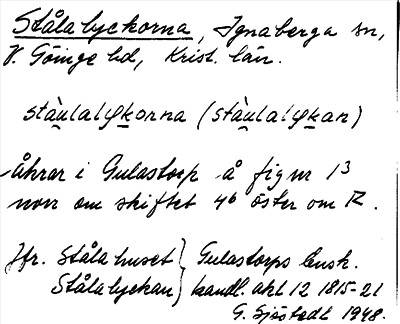 Ståla lyckorna, Ignaberga sn,
V. Göinge hd, Krist. län.
stàu̯lalykorna (stàu̯lalykan)
åkrar i Gulastorp å figur 1³
norr om skiftet 4⁶ öster om R.
Jfr. Ståla huset } Gulastorps Ensk.
Ståla lyckan } handl. akt 12 1815-21
G. Sjöstedt 1948.